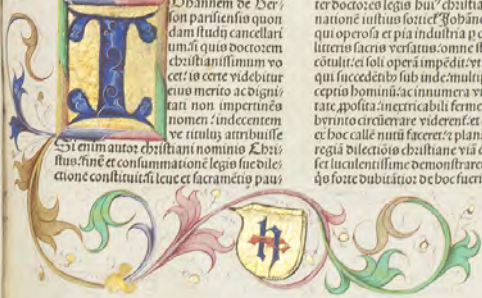 Iohannem de Ger⸗
son parisiensis quon
dam studij cancellari
um. si quis doctorem
christianissimum vo
cet: is certe videbitur
eius merito ac digni⸗
tati non impertinēs
nomen: indecentem
ve titulū attribuisse
Si enim autor christiani nominis Chri⸗
stus. finē et consummationē legis sue dile⸗
ctionē constituit. si leue et sacramētis pau⸗
ter doctores legis hui⁹ christia
natione iustius sortiet̉ Johāne
qui operosa et pia industria
litteris sacris versatus. omne
cōtulit. ei soli operā impēdit. vt
qui succedētib⁹ sub inde. multi
ceptis hominū. ac innumera
tate. inextricabili ferme
byrinto circūerrare viderent̉. et
ex hoc calle nutū faceret. plana
regiā dilectiōis christiane viā
set luculentissime demonstrare
q̄s forte dubitātior de hoc fueri
H